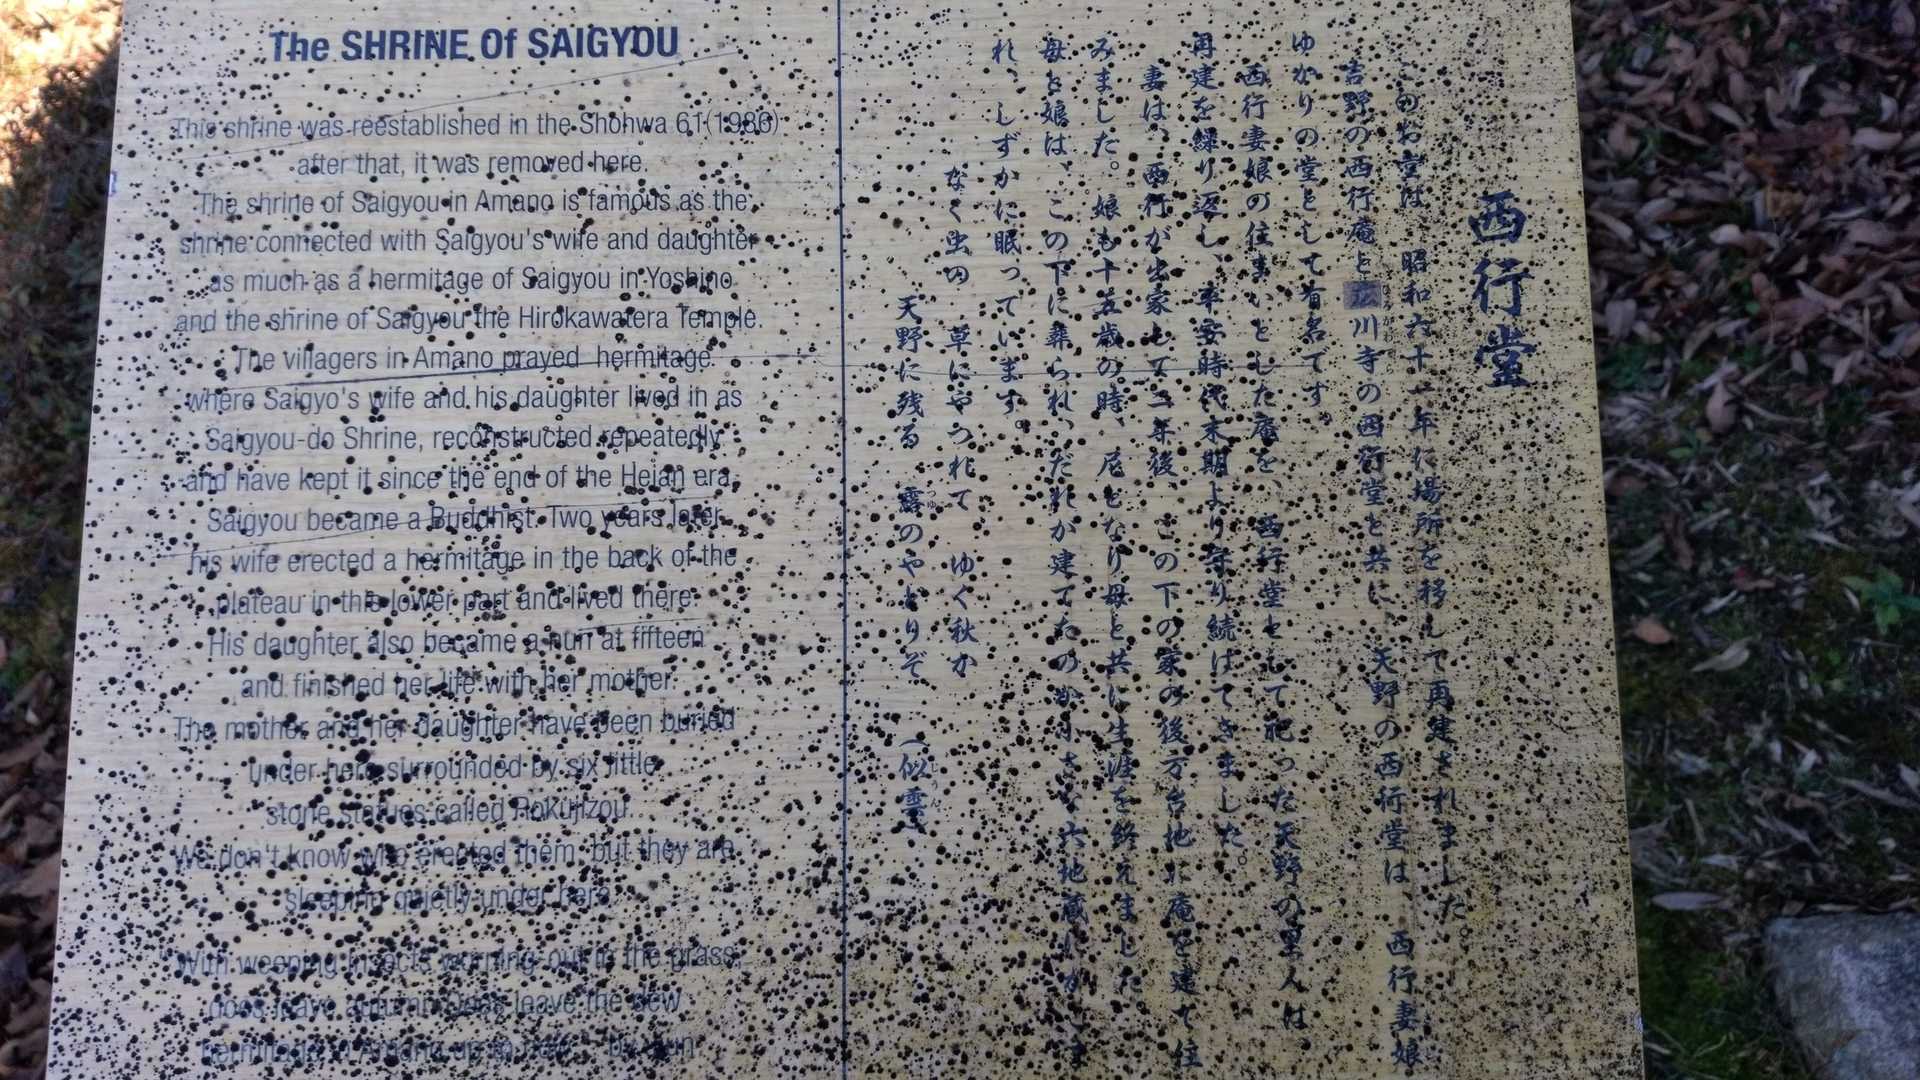 The SHRINE Of SAIGYOU
This shrine was reestablished in the Shohwa 61(1986)
after that, it was removed here.
The shrine of Saigyou in Amano is famous as the
shrine connected with Saigyou's wife and daughter
as much as a hermitage of Saigyou in Yoshino
and the shrine of Saigyou the Hirokawatera Temple.
The villagers in Amano prayed hermitage
where Saigyo's wife and his daughter lived in as
Saigyou-do Shrine, reconstructed repeatedly
and have kept it since the end of the Heian era.
Saigyou became a Buddhist. Two years later
his wife erected a hermitage in the back of the
plateau in this lower part and lived there.
His daughter also became a nun at fifteen
and finished her life with her mother.
The mother and her daughter have been buried
under here surrounded by six little
stone statues called Rokujizou
We don't know who erected them, but they are
sleeping quietly under here
With weeping insects worning-out in the grass,
does leave autumn Does leave the dew
hermitage in Amano up to
西行堂
このお堂は、昭和六十一年に場所を移して再建されました。
吉野の西行庵と弘川寺の西行堂と共に、天野の西行堂は、西行妻娘
ゆかりの堂として有名です。
西行妻娘の住まいとした庵を、西行堂として祀った天野の里人は、
再建を繰り返し、平安時代末期より守り続けてきました。
妻は、西行が出家して二年後、この下の家の後方台地に庵を建て住
みました。娘も十五歳の時、尼となり母と共に生涯を終えました。
母と娘は、この下に葬られ、だれが建てたのか小さな六地蔵にかこま
れ、しずかに眠っています。
なく虫の 草にやつれて ゆく秋か
天野に残る 露のやどりぞ (似雲)